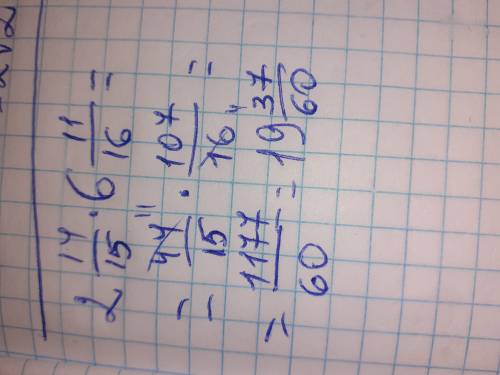 2 14/15 · 6 11/16 =
= 44/15 ¹¹ · 107/16 ⁴ =
= 1177/60 = 19 37/60